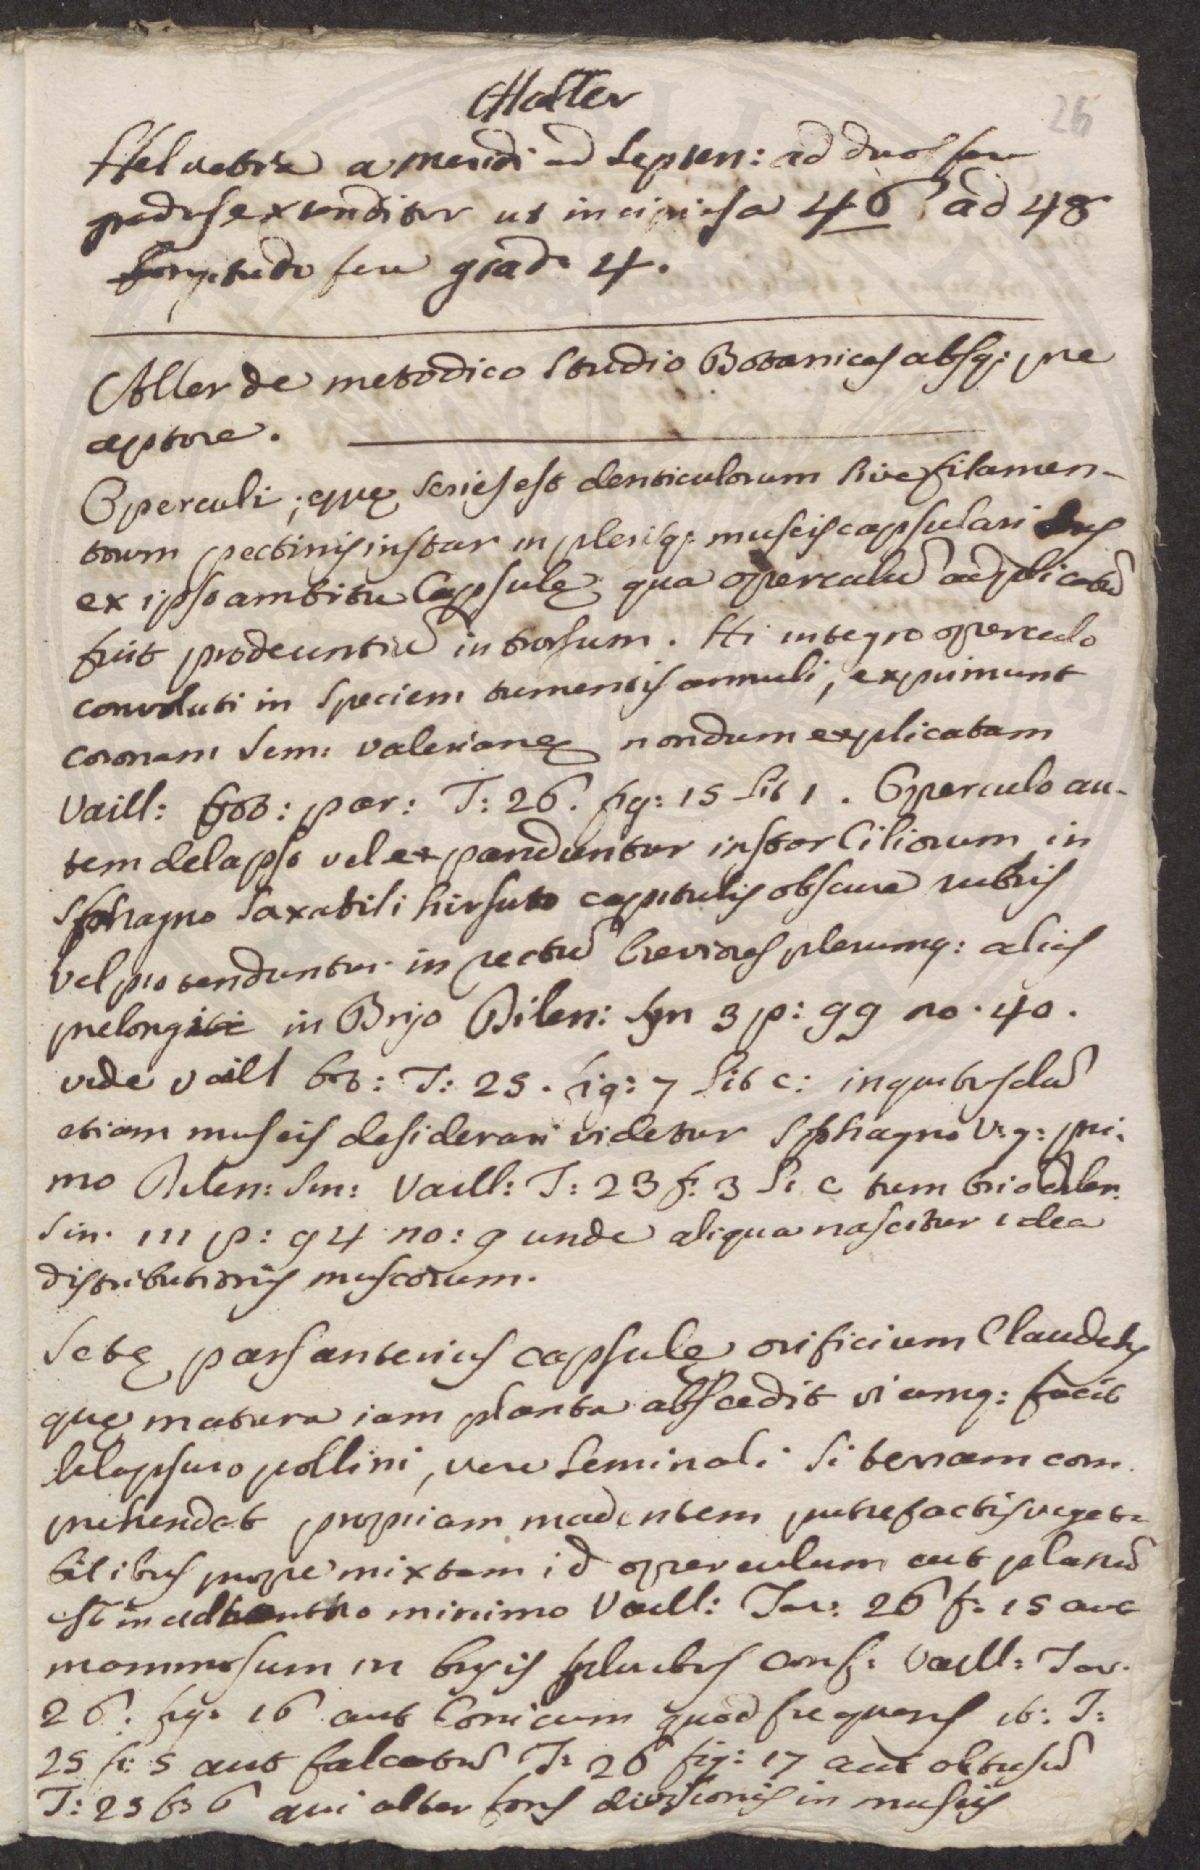 Haller
26
Helvetia a meridi ad Septen: ad duos fere
gradus extenditur ut incipiesa 46 ad 48
Longitudo fere grad. 4.
Aller de metodico Studio Botanices absq: pre
ceptore.
Operculi, quę series est denticulorum sive filamen-
torum pectinis instar in plerisq: muscis capsulari
ex ipso ambitu Capsulę qua operculũ adplicatũ
fuit prodeuntiũ introrsum. Hi integro operculo
convoluti in speciem tumentis annuli, exprimunt
coronam sem: valerianę nondum explicatam
Vaill: bot: par: T: 26. fig: 15 lit 1. Operculo au-
tem delapso vel expanduntur instar Ciliorum in
Sphagno saxatili hirsuto capitulis obscure rubris
vel protenduntur in rectũ breviores plerumq: aliis
prelongi in Brijo Dilen: syn 3 p: 99 no. 40.
vide vaill bot: T: 25. fig: 7 lit c: in quibusdã
etiam muscis desiderari videtur Sphagno v: g: pri-
mo Dilen: Sin: Vaill: T: 23 f: 3 li c tum brio dilen.
Sin. 111 p: 94 no: 9 unde aliqua nascitur idea
distributionis muscorum.
Setę pars anterius capsulę orificium Claudens
quę matura iam planta abscedit viamq: facit
delapsuro pollini, vere seminali si terram com
prehendat propriam madentem putrefactis vegeta
bilibus prope mixtam id operculum aut planũ
est in minimo Vaill: Tav: 26 f: 15 aut
mammosum in bryis pluribus conf: Vaill: Tav.
26. fig. 16 aut Conicum quod frequens ib: T:
25 f: 5 aut falcatũ T: 26 fig: 17 aut obtusũ
T: 25 f: 6 qui alter fons divisionis in muscis